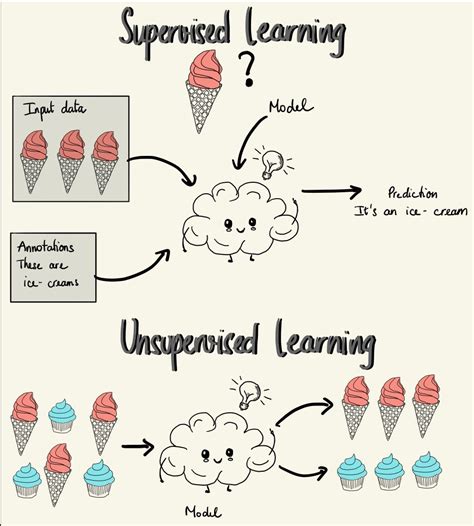 Supervised Learning
?
Input data
Model
Prediction
It's an ice-cream
Annotations
These are
ice-creams
Unsupervised Learning
Model